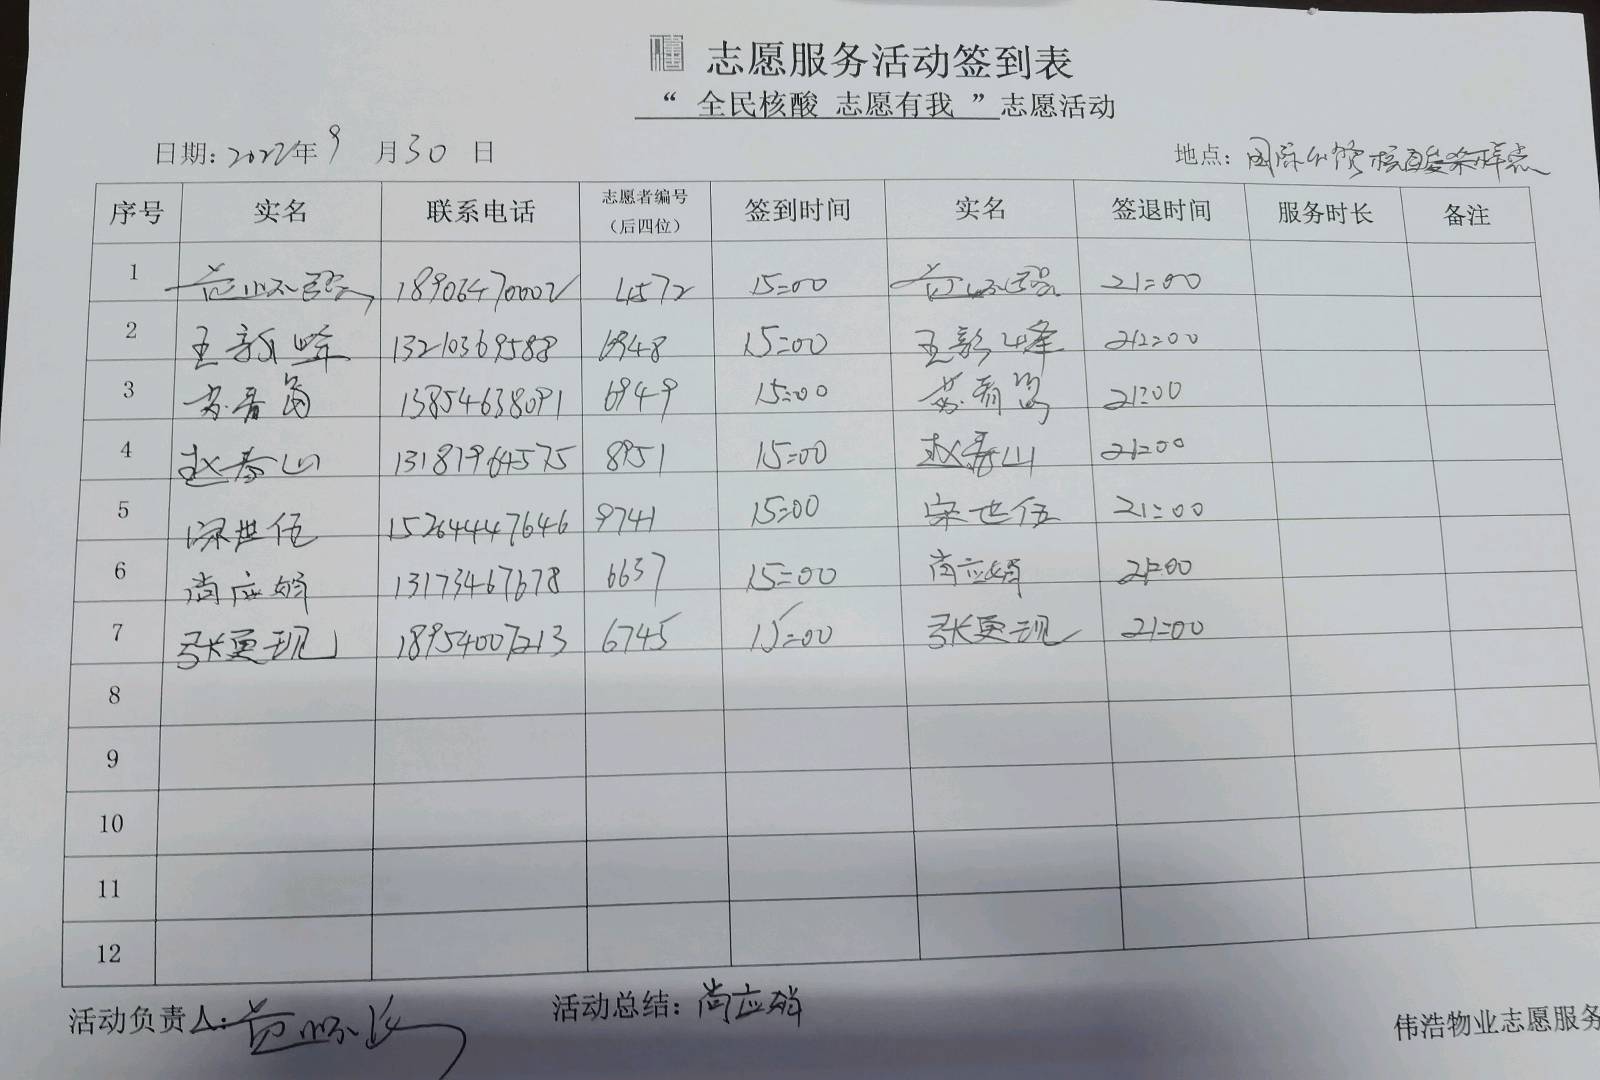 志愿服务活动签到表
“ 全民核酸 志愿有我 ”志愿活动
日期: 2022年 9 月 30 日 地点: 国际公馆核酸采样点
序号 实名 联系电话 志愿者编号（后四位） 签到时间 实名 签退时间 服务时长 备注
1 18906470002 4572 15:00 21:00
2 王新峰 13210369588 6948 15:00 王新峰 21:00
3 13854638091 6949 15:00 21:00
4 赵春山 13181964575 8951 15:00 赵春山 21:00
5 宋世伍 15264447646 9741 15:00 宋世伍 21:00
6 尚应娟 13173467678 6637 15:00 尚应娟 21:00
7 张更现 18954007213 6745 15:00 张更现 21:00
8
9
10
11
12
活动负责人: 活动总结: 尚应娟
伟浩物业志愿服务